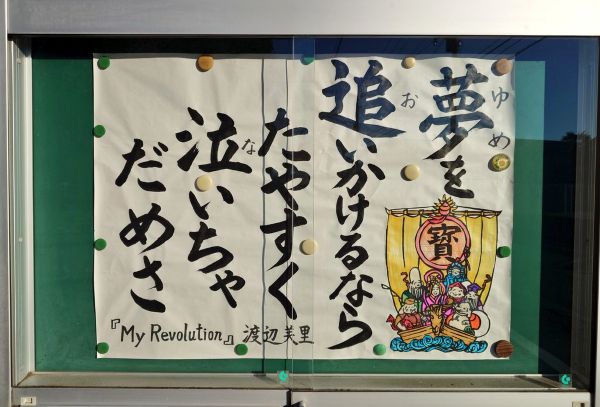 夢を
追いかけるなら
たやすく
泣いちゃ
だめさ
ゆめ
お
な
寶
『My Revolution』 渡辺美里